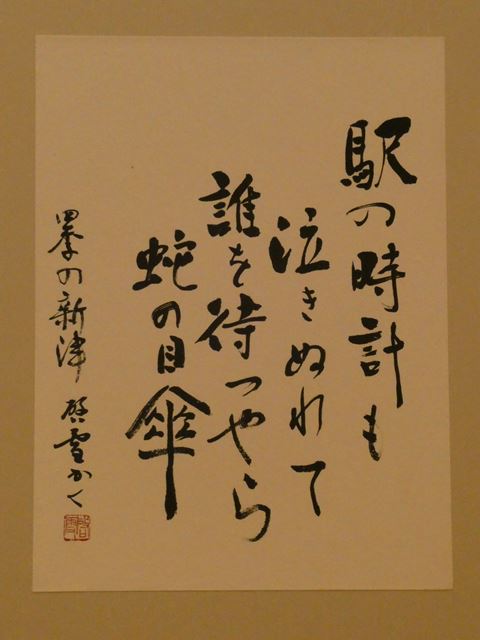 駅の時計も
泣きぬれて
誰を待つやら
蛇の目傘
の新津 啓雪かく